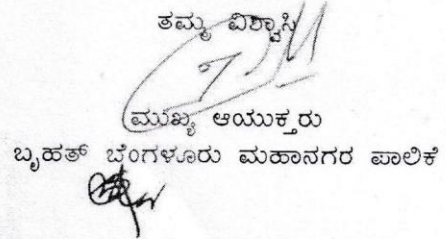 ತಮ್ಮ ವಿಶ್ವಾಸಿ
ಮುಖ್ಯ ಆಯುಕ್ತರು
ಬೃಹತ್ ಬೆಂಗಳೂರು ಮಹಾನಗರ ಪಾಲಿಕೆ